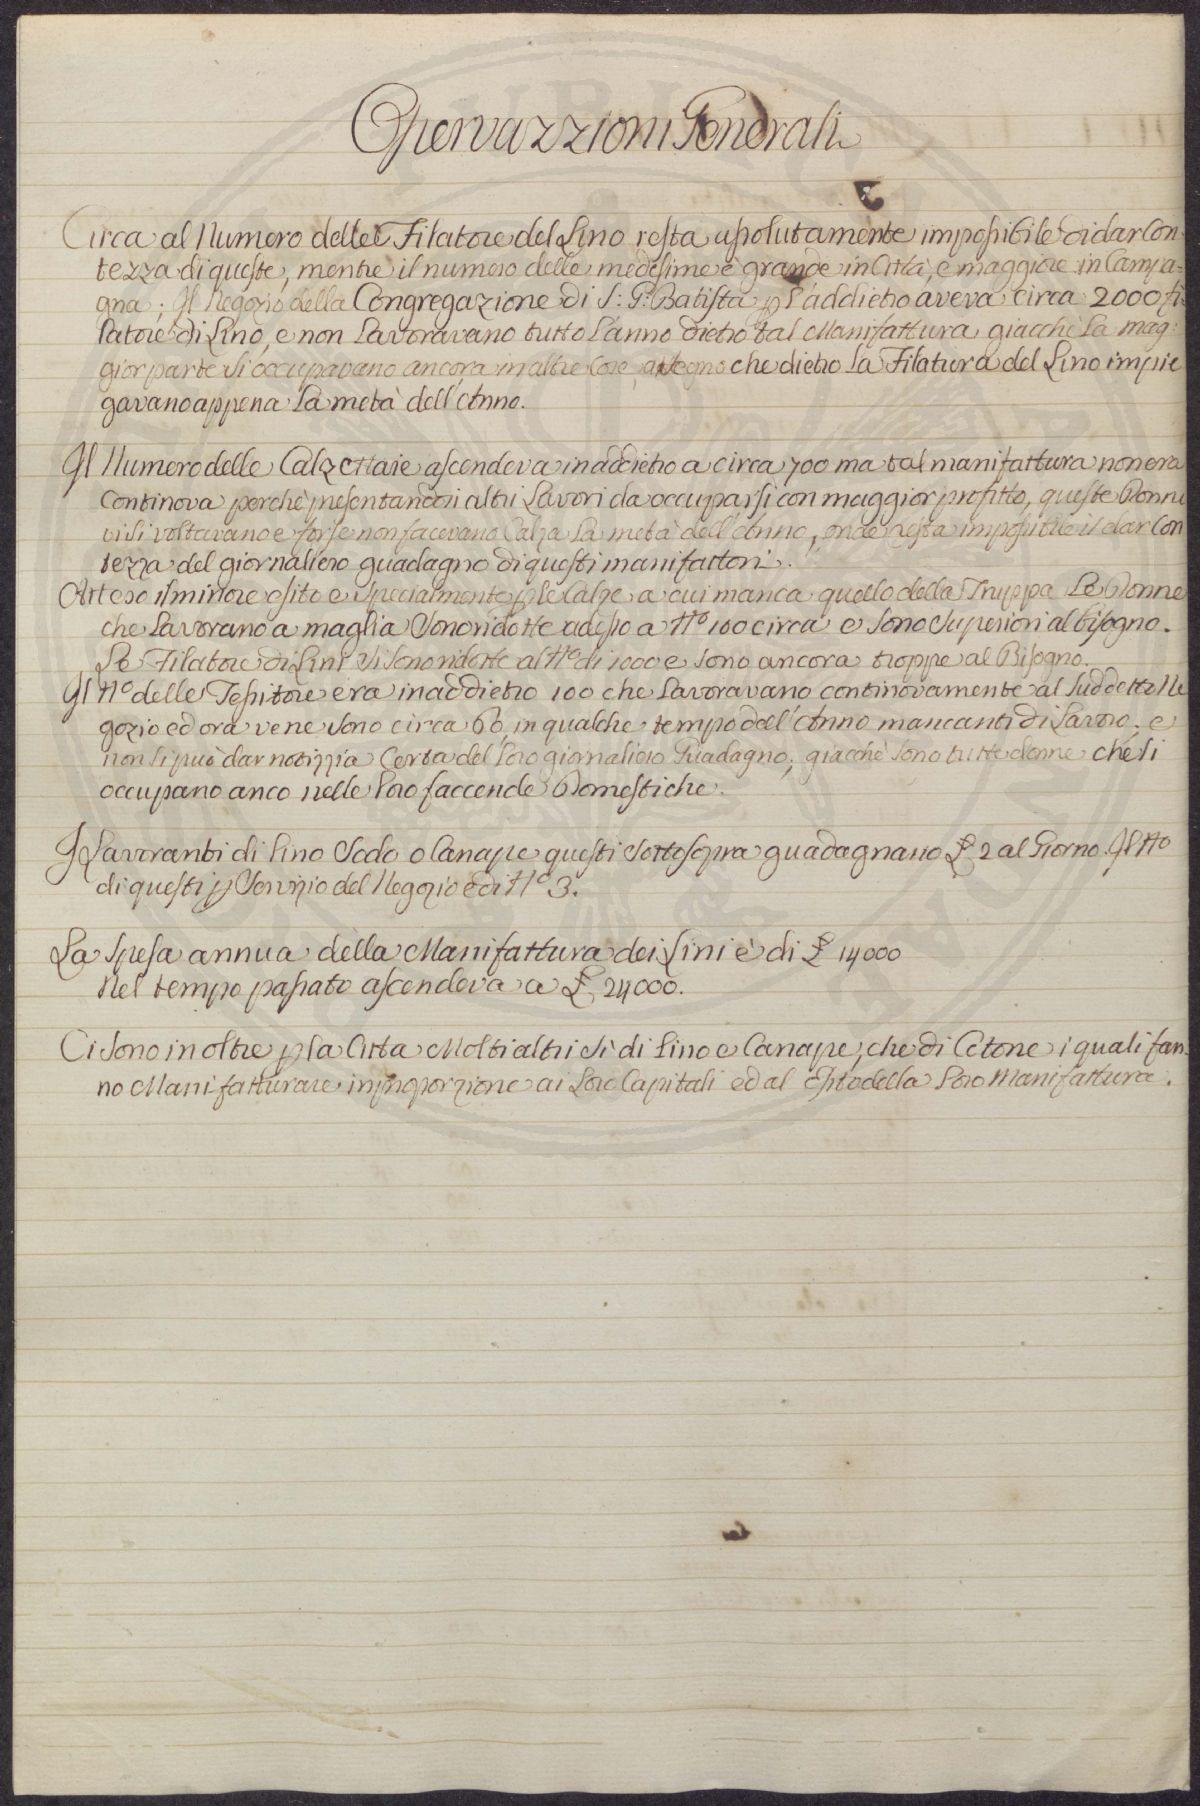 Osservazzioni Generali
Circa al Numero delle Filatore del Lino resta assolutamente impossibile di dar Con
tezza di queste, mentre il numero delle medesime è grande in Città, e maggiore in Campa=
gna; Il Negozio della Congregazione di S: G: Batista p l'addietro aveva circa 2000 fi
latore di Lino, e non Lavoravano tutto l'anno dietro tal Manifattura giacchè La mag:
gior parte si occupavano ancora in altre Cose, a segno che dietro La Filatura del Lino impie
gavano appena La metà dell'Anno.
Il Numero delle Calzettaie ascendeva in addietro a circa 700 ma tal manifattura non era
Continova perchè presentandosi altri Lavori da occuparsi con maggior profitto, queste Donne
vi si voltavano e forse non facevano Calza La metà dell'Anno, onde resta impossibile il dar Con
tezza del giornaliero guadagno di questi manifattori.
Atteso il minore esito e Specialmente p le Calze a cui manca quello della Truppa Le Donne
che Lavorano a maglia Sono ridotte adesso a No 100 circa e Sono Superiori al bisogno.
Le Filatore di Lini si Sono ridotte al No di 1000 e Sono ancora troppe al Bisogno.
Il No delle Tessitore era in addietro 100 che Lavoravano continovamente al Suddetto Ne
gozio ed ora ve ne Sono circa 60, in qualche tempo dell'Anno mancanti di Lavoro, e
non si può dar notizzia Certa del Loro giornaliero Guadagno, giacchè Sono tutte donne che si
occupano anco nelle Loro faccende Domestiche.
I Lavoranti di Lino Sodo o Canape questi Sottosopra guadagnano £ 2 al Giorno. Il No
di questi p Servizio del Negozio è di No 3.
La Spesa annua della Manifattura dei Lini è di £ 14000
Nel tempo passato ascendeva a £ 24000.
Ci Sono in oltre p la Città Molti altri Sì di Lino e Canape, che di Cotone i quali fan-
no Manifatturare in proporzione ai Loro Capitali ed al Esito della Loro Manifattura.